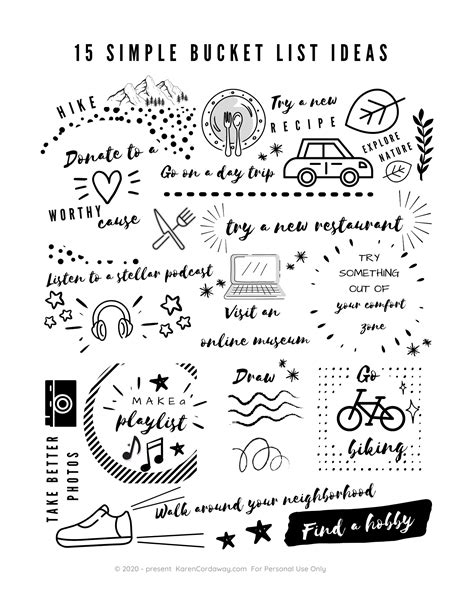 15 SIMPLE BUCKET LIST IDEAS
HIKE
Try a new
RECIPE
EXPLORE
NATURE
Donate to a
WORTHY
cause
Go on a day trip
try a new restaurant
Listen to a stellar podcast
Visit an
online museum
TRY
SOMETHING
OUT OF
your comfort
zone
TAKE BETTER
PHOTOS
I
MAKE a
playlist
Draw
Go
biking
Walk around your neighborhood
Find a hobby
© 2020 - present KarenCordaway.com For Personal Use Only